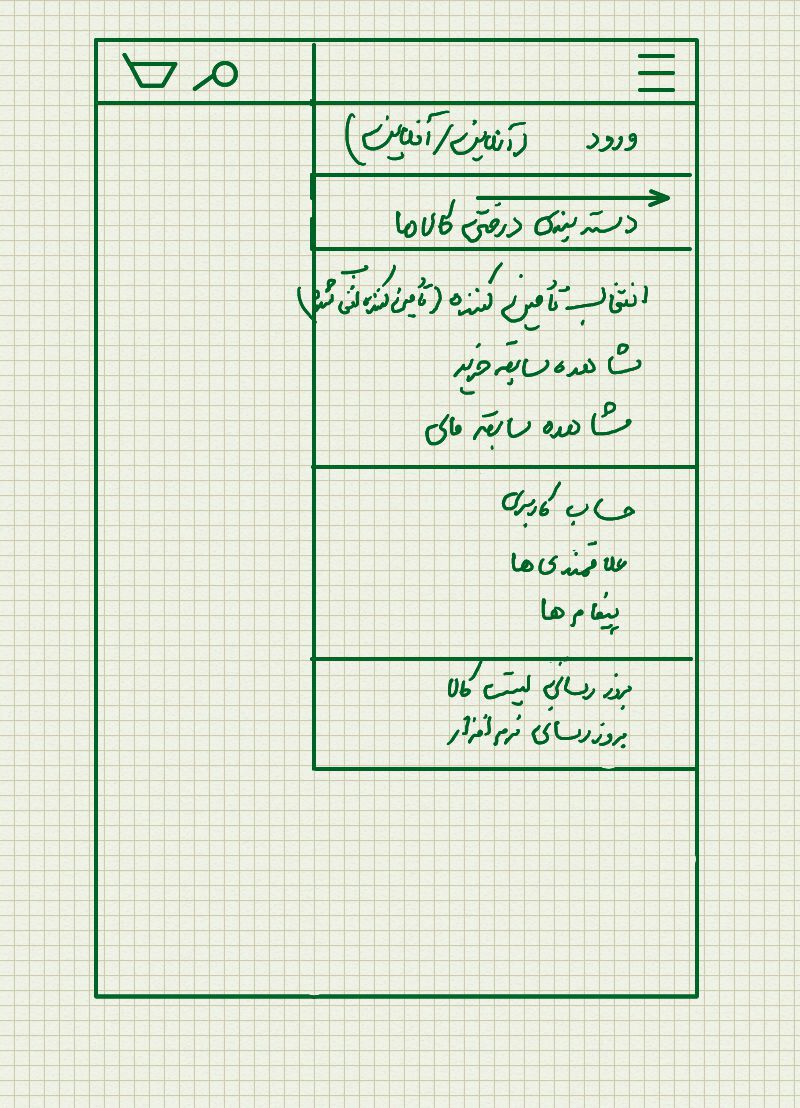 ورود (آنلاین / آفلاین)
دسته بندی درختی کالاها
انتخاب تأمین کننده (تأمین کننده انتخاب شده)
مشاهده سابقه خرید
مشاهده سابقه مالی
حساب کاربری
علاقمندی ها
پیغام ها
بروز رسانی لیست کالا
بروز رسانی نرم افزار